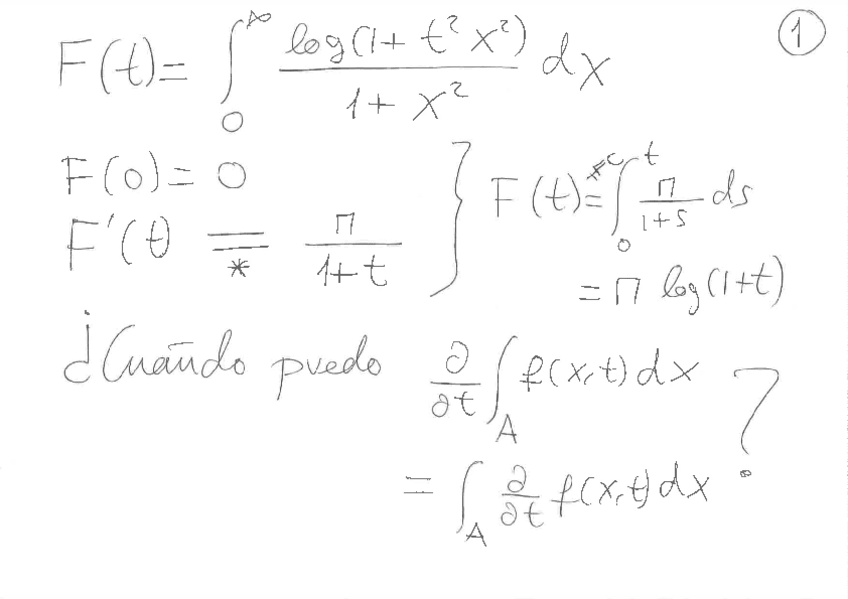 ①
F(t) = ∫₀^∞ log(1 + t² x²) / (1 + x²) dx
F(0) = 0
F'(t) =* π / (1+t) } F(t) = ∫₀^t π / (1+s) ds
= π log(1+t)
¿Cuándo puedo ∂/∂t ∫_A f(x,t) dx
= ∫_A ∂/∂t f(x,t) dx ?